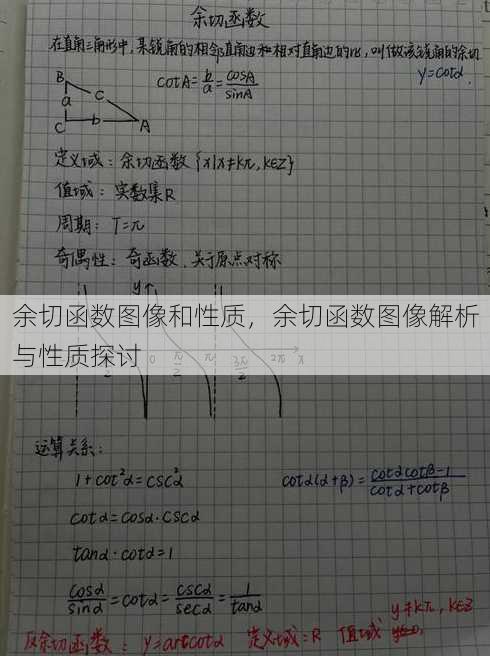 余切函数
在直角三角形中,某锐角的相邻直角边和相对直角边的比,叫做该锐角的余切
y=cotα.
cotA=b/a=cosA/sinA
B
a c
C b A
定义域:余切函数{x|x≠kπ,k∈Z}
值域:实数集R
周期:T=π
奇偶性:奇函数,关于原点对称
y
余切函数图像和性质,余切函数图像解析
与性质探讨
0 π/2 π 3π/2 2π x
运算关系:
1+cot²α=csc²α
cotα(α+β)=cotαcotβ-1/cotα+cotβ
cotα=cosα·cscα
tanα·cotα=1
cosα/sinα=cotα=cscα/secα=1/tanα
反余切函数:y=arccotα 定义域:R 值域
y≠kπ,k∈Z